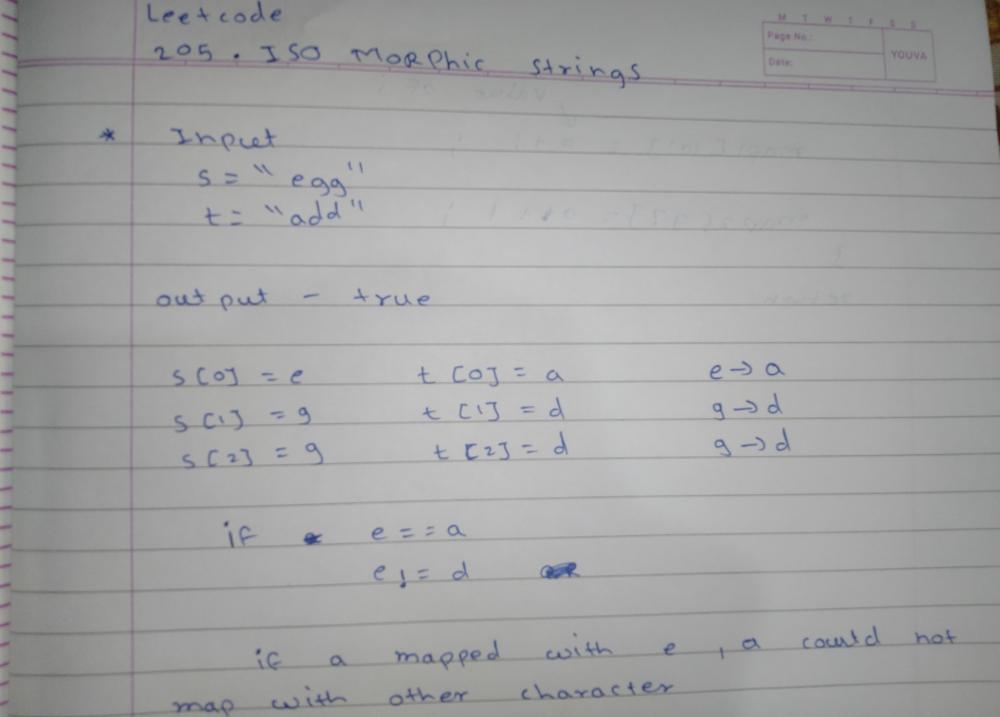 Leetcode
205. ISO MORPhic strings
M T W T F S S
Page No.:
YOUVA
Date:
* Input
s = "egg"
t = "add"
output - true
s[0] = e t[0] = a e → a
s[1] = g t[1] = d g → d
s[2] = g t[2] = d g → d
if e == a
e != d
if a mapped with e, a could not
map with other character